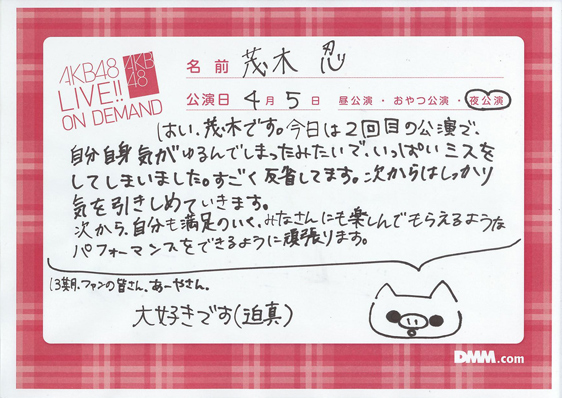 AKB48
LIVE!!
ON DEMAND
AKB
48
名前 茂木 忍
公演日 4月5日 昼公演・おやつ公演・夜公演
はい、茂木です。今日は2回目の公演で、
自分自身気がゆるんでしまったみたいで、いっぱいミスを
してしまいました。すごく反省してます。次からはしっかり
気を引きしめていきます。
次から、自分も満足のいく、みなさんにも楽しんでもらえるような
パフォーマンスをできるように頑張ります。
13期、ファンの皆さん、あーやさん。
大好きです(迫真)
DMM.com